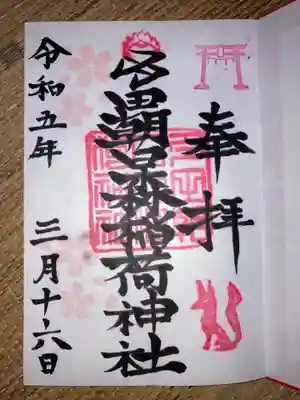 奉拝
森稲荷神社
令和五年 三月十六日